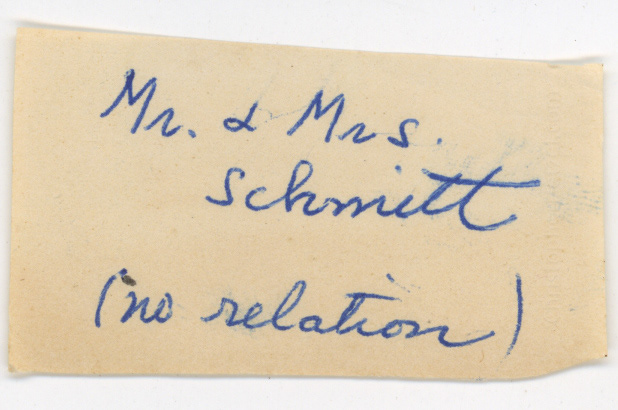 Mr. & Mrs.
Schmitt
(no relation)